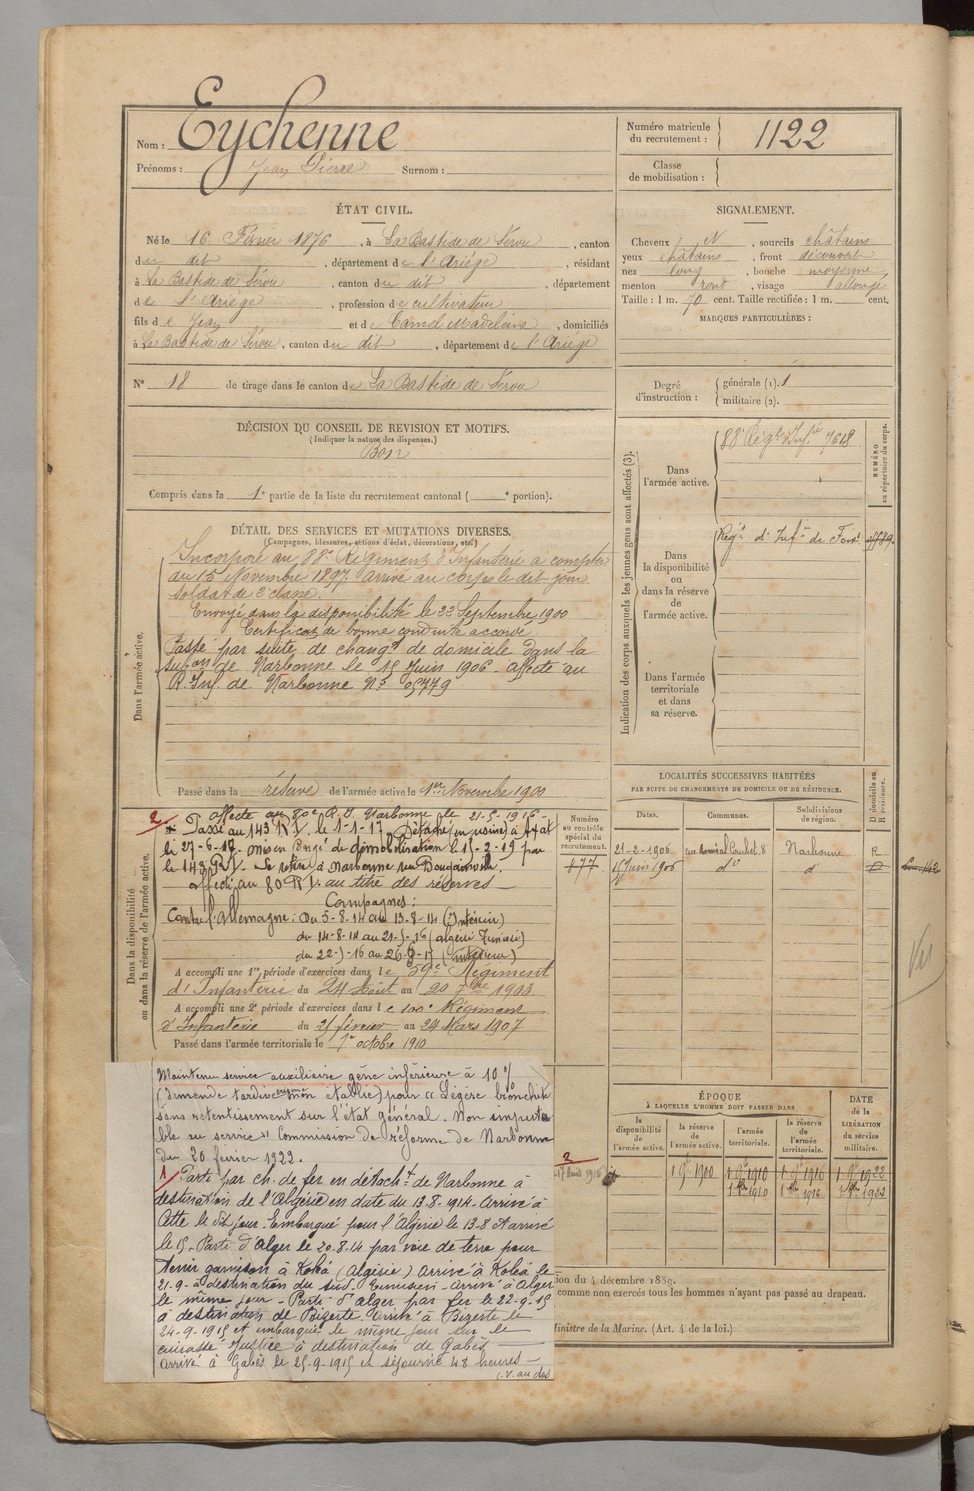 Nom : Eychenne
Prénoms : Jean Pierre Surnom :
Numéro matricule
du recrutement : 1122
Classe
de mobilisation :
ÉTAT CIVIL.
Né le 16 Février 1876, à La Bastide de Sérou, canton
du dit, département de l'Ariège, résidant
à La Bastide de Sérou, canton du dit, département
de l'Ariège, profession de cultivateur
fils de Jean et de Camel Madelaine, domiciliés
à La Bastide de Sérou, canton du dit, département de l'Ariège
N° 18 de tirage dans le canton de La Bastide de Sérou
SIGNALEMENT.
Cheveux N, sourcils châtains
yeux châtains, front découvert
nez long, bouche moyenne
menton rond, visage allongé
Taille : 1 m. 70 cent. Taille rectifiée : 1 m. cent.
MARQUES PARTICULIÈRES :
Degré
d'instruction :
générale (1). 1
militaire (2).
DÉCISION DU CONSEIL DE REVISION ET MOTIFS.
(Indiquer la nature des dispenses.)
Bon
Compris dans la 1e partie de la liste du recrutement cantonal ( e portion).
DÉTAIL DES SERVICES ET MUTATIONS DIVERSES.
(Campagnes, blessures, actions d'éclat, décorations, etc.)
Dans l'armée active.
Incorporé au 88e Régiment d'Infanterie à compter
du 15 Novembre 1897. Arrivé au corps le dit jour
soldat de 2e classe.
Envoyé dans la disponibilité le 22 Septembre 1900
Certificat de bonne conduite accordé
Passé par suite de changt de domicile dans la
subon de Narbonne le 15 Juin 1906 - affecté au
R. Inf. de Narbonne No 05779
Passé dans la réserve de l'armée active le 1er Novembre 1900
Indication des corps auxquels les jeunes gens sont affectés (3).
NUMÉRO
au répertoire du corps.
Dans
l'armée active.
88e Régt d'Infie 7618
Dans
la disponibilité
ou
dans la réserve
de
l'armée active.
Régt d'Infie de Foix.
Dans l'armée
territoriale
et dans
sa réserve.
LOCALITÉS SUCCESSIVES HABITÉES
PAR SUITE DE CHANGEMENTS DE DOMICILE OU DE RÉSIDENCE.
Dates. Communes. Subdivisions de région. D domicile ou R résidence.
21-2-1906 Narbonne R
15 Juin 1906 do do D
Numéro
au contrôle
spécial du
recrutement.
477
Dans la disponibilité
ou dans la réserve de l'armée active.
2
affecté au 80e R.I. Narbonne le 21-5-1916 -
Passé au 143 R.I. le 1-1-17. Détaché (en usine) à Axat
le 27-6-17. mis en congé de démobilisation le 15-2-19 par
le 143 R.I. Se retire à Narbonne rue Bougainville.
affecté au 80 R.I. au titre des réserves
Campagnes :
Contre l'Allemagne : Du 5-8-14 au 13-8-14 (Intérieur)
du 14-8-14 au 21-5-16 (Algérie Tunisie)
du 22-5-16 au 26-6-17 (intérieur)
A accompli une 1re période d'exercices dans le 59e Régiment
d'Infanterie du 24 Août au 20 7bre 1903
A accompli une 2e période d'exercices dans le 100e Régiment
d'Infanterie du 25 février au 24 Mars 1907
Passé dans l'armée territoriale le 1er octobre 1910
Maintenu service auxiliaire gêne inférieure à 10 %
(demande tardive origine non établie) pour « Légère bronchite
sans retentissement sur l'état général. Non imputa
ble au service » Commission de réforme de Narbonne
du 20 février 1922.
1 Parti par ch. de fer en détacht de Narbonne à
destination de l'Algérie en date du 13.8.1914. Arrivé à
Cette le dit jour. Embarqué pour l'Algérie le 13-8 Arrivé
le 15. Parti d'Alger le 20-8-14 par voie de terre pour
tenir garnison à Koléa (Algérie) Arrivé à Koléa le
21-9- à destination du sud. Tunisien - Arrivé à Alger
le même jour - Parti d'Alger par fer le 22-9-15
à destination de Bizerte. Arrivé à Bizerte le
24-9-1915 et embarqué le même jour sur le
cuirassé Justice à destination de Gabès
Arrivé à Gabès le 25-9-1915 et séjourné 48 heures -
(.V. au dos
ÉPOQUE
À LAQUELLE L'HOMME DOIT PASSER DANS
la disponibilité de l'armée active. la réserve de l'armée active. l'armée territoriale. la réserve de l'armée territoriale.
DATE
de la
LIBÉRATION
du service
militaire.
2
1 9e 1900 1 9e 1910 1 9e 1916 1 9e 1922
ion du 4 décembre 1889.
comme non exercés tous les hommes n'ayant pas passé au drapeau.
Ministre de la Marine. (Art. 4 de la loi.)